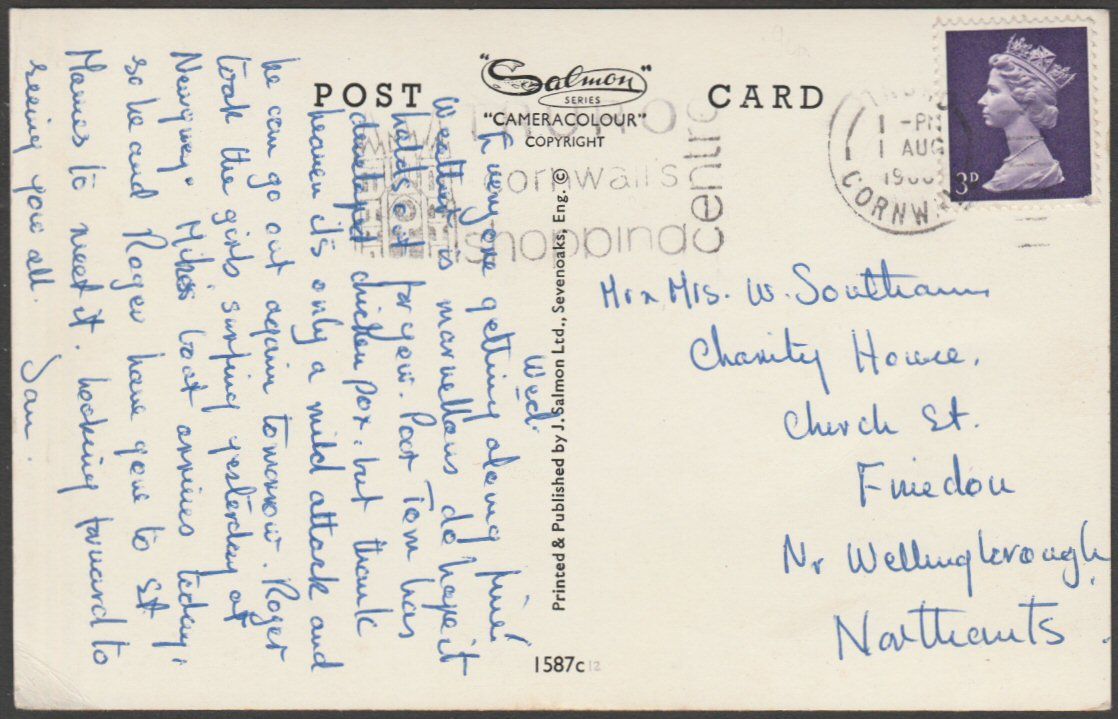 POST CARD
"Salmon"
SERIES
"CAMERACOLOUR"
COPYRIGHT
cornwall's
shopping
centre
1 - PM
1 AUG
CORNW
3D
Wed.
getting along fine.
Weather is marvellous do hope it
holds out for you. Poor Tom has
developed chicken pox, but thank
heaven it's only a mild attack and
he can go out again tomorrow. Roger
took the girls surfing yesterday at
Newquay. Mikes boat arrives today,
so he and Roger have gone to St.
Mawes to meet it. Looking forward to
seeing you all.
Printed & Published by J. Salmon Ltd., Sevenoaks, Eng. ©
1587c 12
Mr & Mrs. W. Southam
Charity House,
Church St.
Finedon
Nr Wellingborough,
Northants.